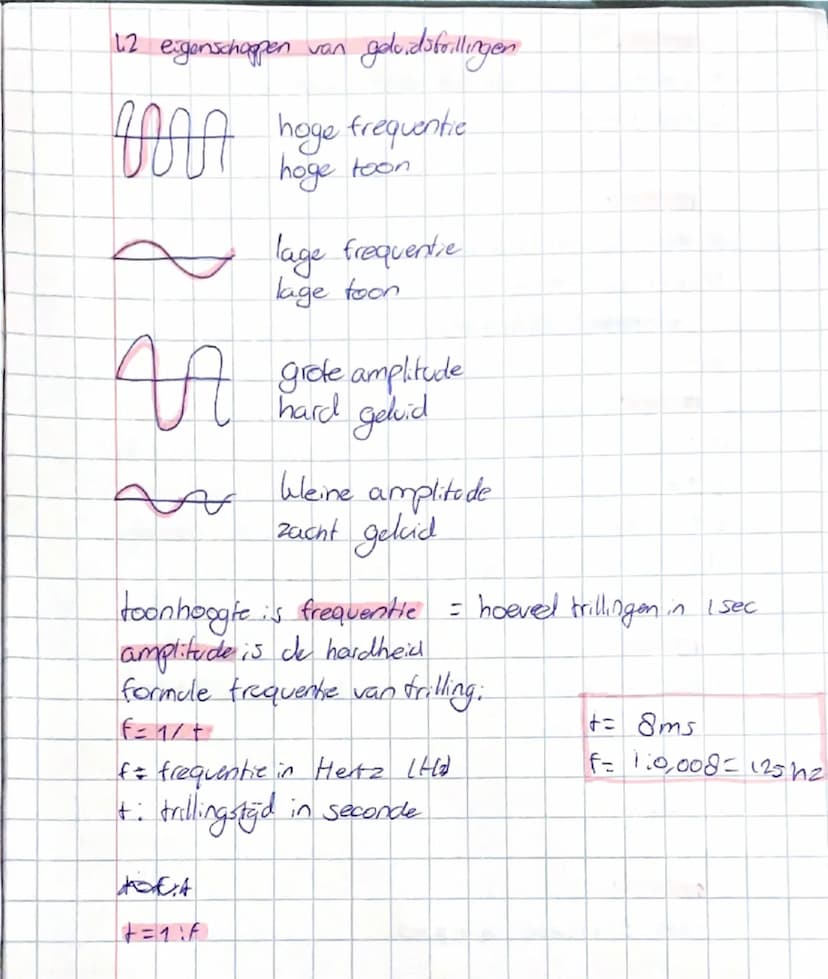 1.2 eigenschappen van geluidstrillingen
hoge frequentie
hoge toon
lage frequentie
lage toon
grote amplitude
hard geluid
kleine amplitude
zacht geluid
toonhoogte is frequentie = hoeveel trillingen in 1 sec
amplitude is de hardheid
formule frequentie van trilling:
f = 1/t
f = frequentie in Hertz (Hz)
t: trillingstijd in seconde
t = 8ms
f = 1:0,008 = 125 hz
t = 1:f